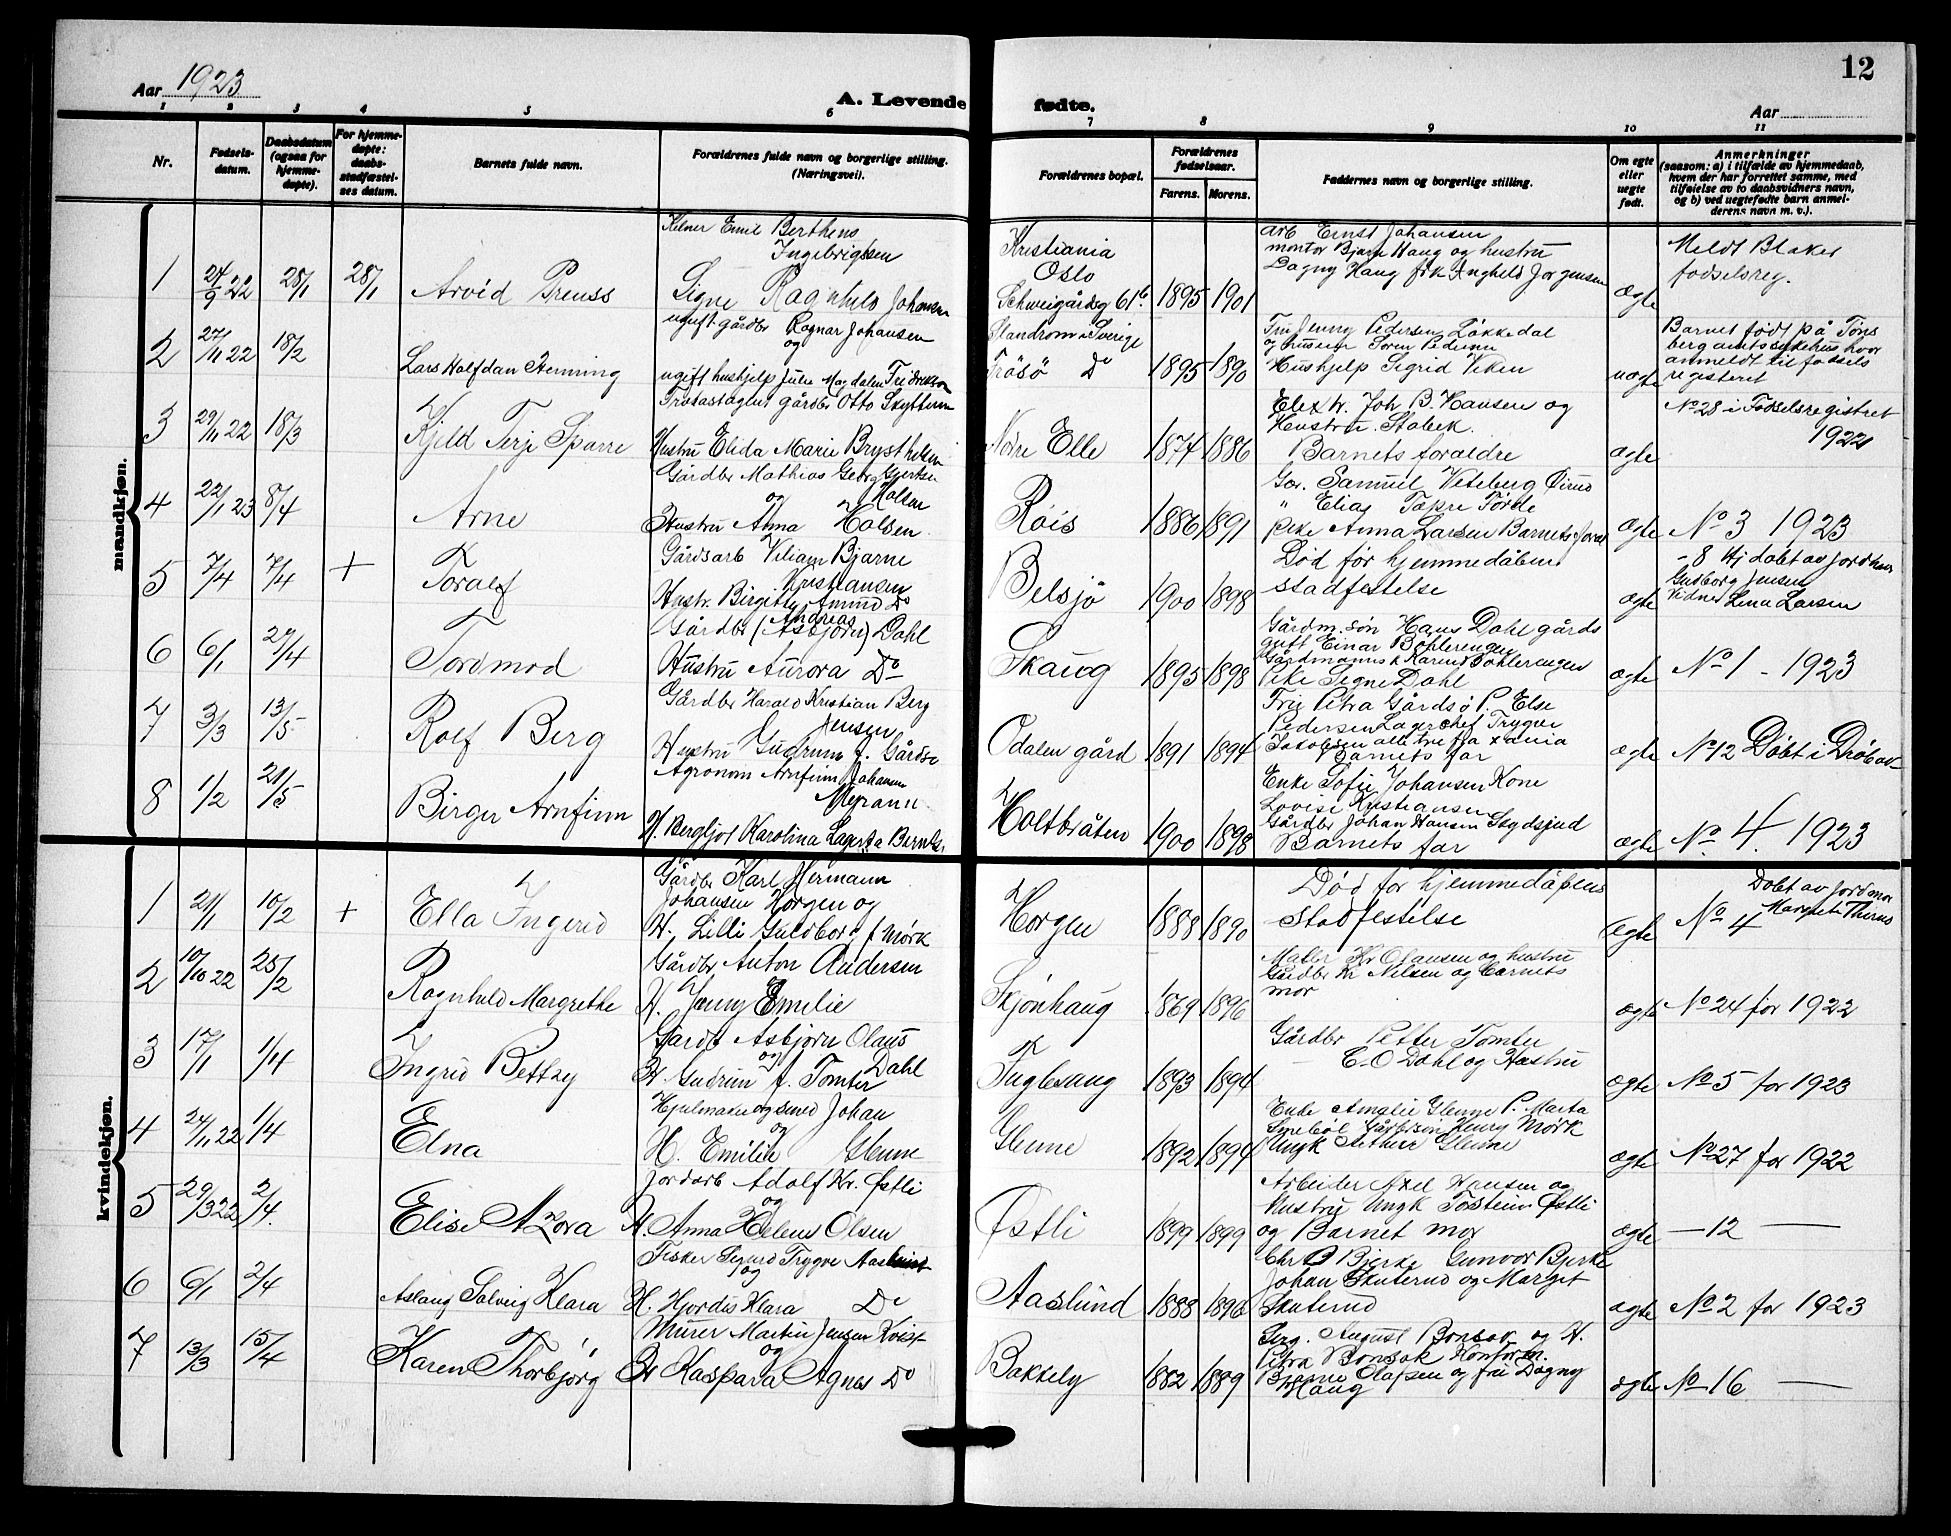 12
Aar 1923
A. Levende fødte.
Aar
1 2 3 4 5 6 7 8 9 10 11
Nr.
Fødsels-
datum.
Daabsdatum
(ogsaa for
hjemme-
døpte).
For hjemme-
døpte:
daabs-
stadfæstel-
ses datum.
Barnets fulde navn.
Forældrenes fulde navn og borgerlige stilling.
(Næringsvei).
Forældrenes bopæl.
Forældrenes
fødselsaar.
Farens. Morens.
Faddernes navn og borgerlige stilling.
Om egte
eller
uegte
født.
Anmerkninger
(saasom: a) i tilfælde av hjemmedaab,
hvem der har forrettet samme, med
tilføielse av to daabsvidners navn,
og b) ved uegtefødte barn anmel-
derens navn m. v.).
mandkjøn.
1 24/9 22 28/1 28/1 Arvid Preuss
Kelner Emil Berthens
Ingebrigtsen
Signe Ragnhild Johansen
Kristiania
Oslo
Schweigårdsg 61b 1895 1901
Arb Ernst Johansen
montør Bjarn Haug og hustru
Dagny Haug frk Inghild Jørgensen
ægte
Meldt Blaker
fødselsreg.
2 27/11 22 18/2 Lars Halfdan Henning
ugift gårdbr Ragnar Johansen
og
ugift hushjelp Julie Magdalen Fredrikson
Frösö Do 1895 1890
Fru Jenny Pedersen Løkkedal
og husseier Soren Pedersen
Hushjelp Sigrid Viken
uægte
Barnet født på Tøns
berg amtssykehus hvor
anmeldt til fødsels
registeret
3 29/11 22 18/3 Kjeld Terje Sparre
gårdbr Otto Skyttum
Hustru Elida Marie
Nordre Elle 1874 1886
Joh B. Hansen og
Hustru. Stabek.
Barnets foraldre
ægte
No 28 i Fødselsregistret
1922
4 22/1 23 8/4 Arne
Gårdbr Mathias Georg Gjerksen
og Holsen
Hustru Alma Holsen
Røis 1886 1891
Gbr. Samuel Veteberg
" Elias Tøpre Førde
Pike Anna Larsen Barnets foral
ægte No 3 1923
5 7/4 7/4 + Toralf
Gårdsarb Viliam Bjarne
Kristiansen
Hustr. Birgitte Do
Belsjø 1900 1898
Død før hjemmedåben
stadfestelse
ægte
- 8 Hj dåbt av jordmor
Gudborg Jensen
Vidner Lina Larsen
6 6/1 29/4 Tordmod
Andreas
Gårdbr (Asbjørn) Dahl
Hustru Aurora Do
Skaug 1895 1898
Gårdm. søn Hans Dahl gårds
gutt Einar Bøhlerengen
Gårdmannsk Karen Bøhlerengen
Pike Signe Dahl
ægte No 1 - 1923
7 3/3 13/5 Rolf Berg
Gårdbr Harald Kristian Berg
Jensen
Hustru Gudrun f. Gårdsø
Odalen gård 1891 1894
Fru Petra Gårdsø P. Else
Pedersen Lagerchef Trygve
Jakobsen alle tre fra xania
Barnets far
ægte No 12 Døbt i Drøbak
8 1/2 21/5 Birger Arnfinn
Agronom Arnfinn Johansen
H. Bergljot Karolina
Holtbråten 1900 1898
Enke Sofie Johansen Kone
Lovise Kristiansen
Gårdbr Johan Hansen
Barnets far
ægte No. 4. 1923
kvindekjøn.
1 21/1 10/2 + Ella Ingerid
Gårdbr Karl Hermann
Johansen Horgen og
H. Lilli Guldborg f Mørk
Horgen 1888 1890
Død før hjemmedåpens
Stadfestelse
Ægte No 4
Døbt av jordmor
Margrete
2 10/10 22 25/2 Ragnhild Margrethe
Gårdbr Anton Andersen
H. Jenny Emelie
Skjønhaug 1869 1896
Maler Kr Olausen og hustru
Gårdbr Kr Nilsen og Barnets
mor
ægte No 24 for 1922
3 17/1 1/4 Ingrid Betty
Gårdb Asbjørn Olaus
og Dahl
H. Gudrun f. Tomter
Fuglesang 1893 1894
Gårdbr Petter Tomter
C-O Dahl og Hustru
ægte No 5 for 1923
4 24/11 22 1/4 Elna
Hjulmaker og smed Johan
og
H. Emilie Glenne
Glenne 1892 1894
Enke Amalie Glenne P. Marta
Henry Mørk
Ungk Arthur Glenne
ægte No 27 for 1922
5 29/3 22 2/4. Elise Alzora
Jordarb Adolf Kr. Østli
og
H. Anna Helene Olsen
Østli 1899 1899
Arbeider Axel Hansen og
Hustru Ungk Torstein Østli
og Barnet mor
ægte - 12 -
6 6/1 2/4 Aslaug Solveig Klara
Fisker Sigurd Trygve Aaslund
og
H. Hjordis Klara Do
Aaslund 1888 1896
Chr B Bjerke Gunvor Bjerke
Johan Skuterud og Margit
Skuterud
ægte No 2 for 1923
7 13/3 15/4 Karen Thorbjørg
Murer Martin Jensen Kvist
og
H Kaspara Agnes Do
Bakkely 1882 1889
Serg. August Bonsak og H.
Petra Bonsak Kontorm.
Bjarne Olafsen og fru Dagny
Haug
ægte No 16 -